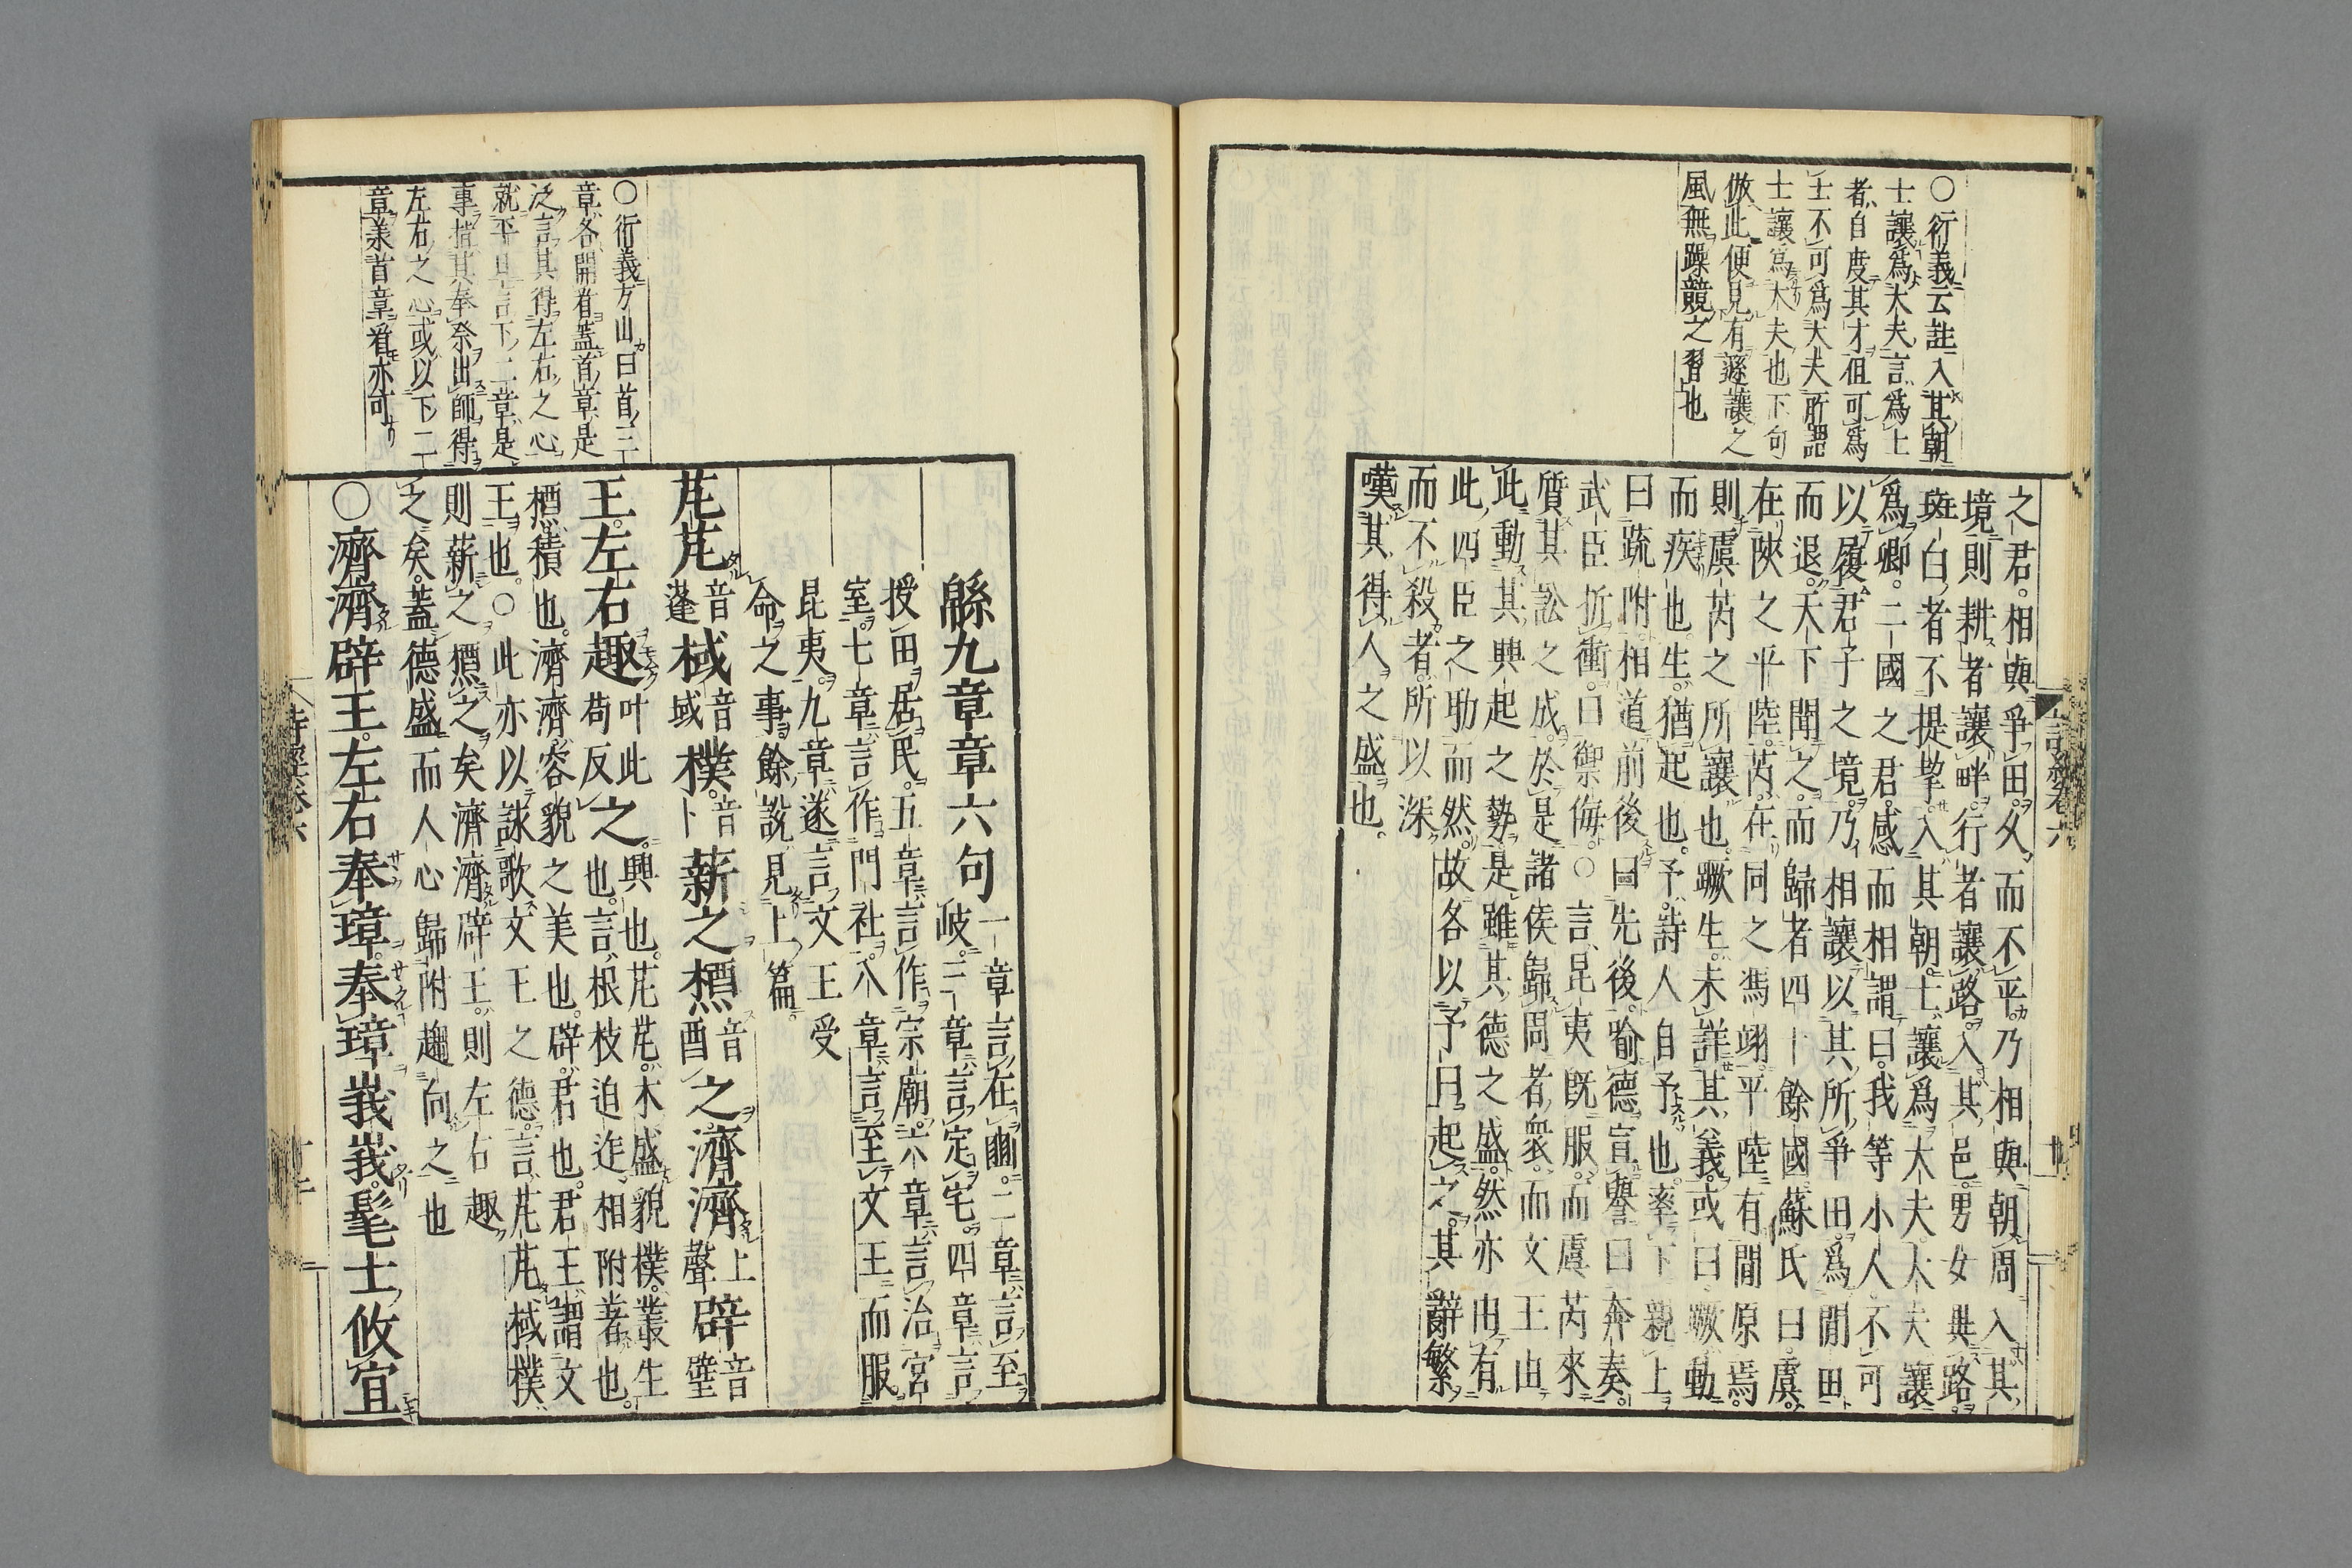 ○衍義云註入其朝
士讓爲大夫言爲上
者自度其才徂可爲
士不可爲大夫所謂
士讓爲大夫也下句
倣此便見有遜讓之
風無躁競之習也
之君相與爭田久而不平乃相與朝周入其
境則耕者讓畔行者讓路入其邑男女異路
斑白者不提挈入其朝士讓爲大夫大夫讓
爲卿二國之君感而相謂曰我等小人不可
以履君子之境乃相讓以其所爭田爲閒田
而退天下聞之而歸者四十餘國蘇氏曰虞
在陝之平陸芮在同之馮翊平陸有閒原焉
則虞芮之所讓也蹶生未詳其義或曰蹶動
而疾也生猶起也予詩人自予也率下親上
曰疏附相道前後曰先後喻德宣譽曰奔奏
武臣折衝曰禦侮○言昆夷既服而虞芮來
質其訟之成於是諸侯歸周者衆而文王由
此動其興起之勢是雖其德之盛然亦由有
此四臣之助而然故各以予曰起之其辭繁
而不殺者所以深
嘆其得人之盛也
詩經卷六
廿
緜九章章六句一章言在豳二章言至
岐三章言定宅四章言
授田居民五章言作宗廟六章言治宮
室七章言作門社八章言至文王而服
昆夷九章遂言文王受
命之事餘說見上篇
芃芃音蓬棫音域樸音卜薪之槱音酉之濟濟上聲辟音璧
王左右趣叶此苟反之興也芃芃木盛貌樸叢生
也言根枝迫迮相附著也
槱積也濟濟容貌之美也辟君也君王謂文
王也○此亦以詠歌文王之德言芃芃棫樸
則薪之槱之矣濟濟辟王則左右趣
之矣蓋德盛而人心歸附趨向之也
○濟濟辟王左右奉璋奉璋峩峩髦士攸宜
○衍義方山曰首三
章各開看蓋首章是
泛言其得左右之心
就平日言下二章是
事指其奉祭出師得
左右之心或以下二
章承首章看亦可
詩經卷六